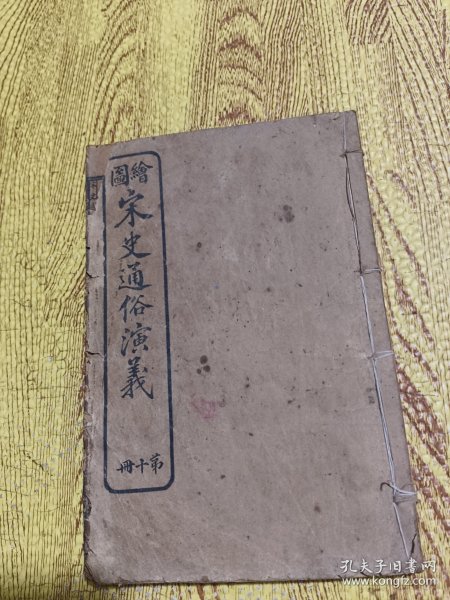 繪圖
宋史通俗演義
第十冊
孔夫子旧书网
www.kongfz.com